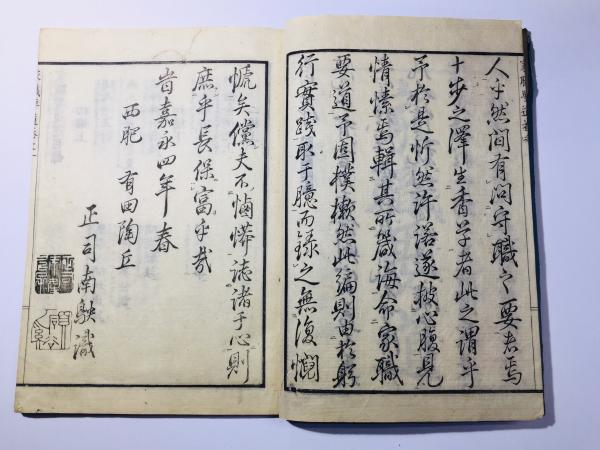 人乎然間有問守職之要者焉
十步之澤生香草者此之謂乎
予於是忻然許諾遂披心腹見
情愫焉輯其所箴誨命家職
要道予固樸樕然此編則由於躬
行實踐取于臆而録之無復
矣儻夫不 諸于心則
庶乎長保富乎哉
嘉永四年春
西肥 有田陶丘
正司南鴃識